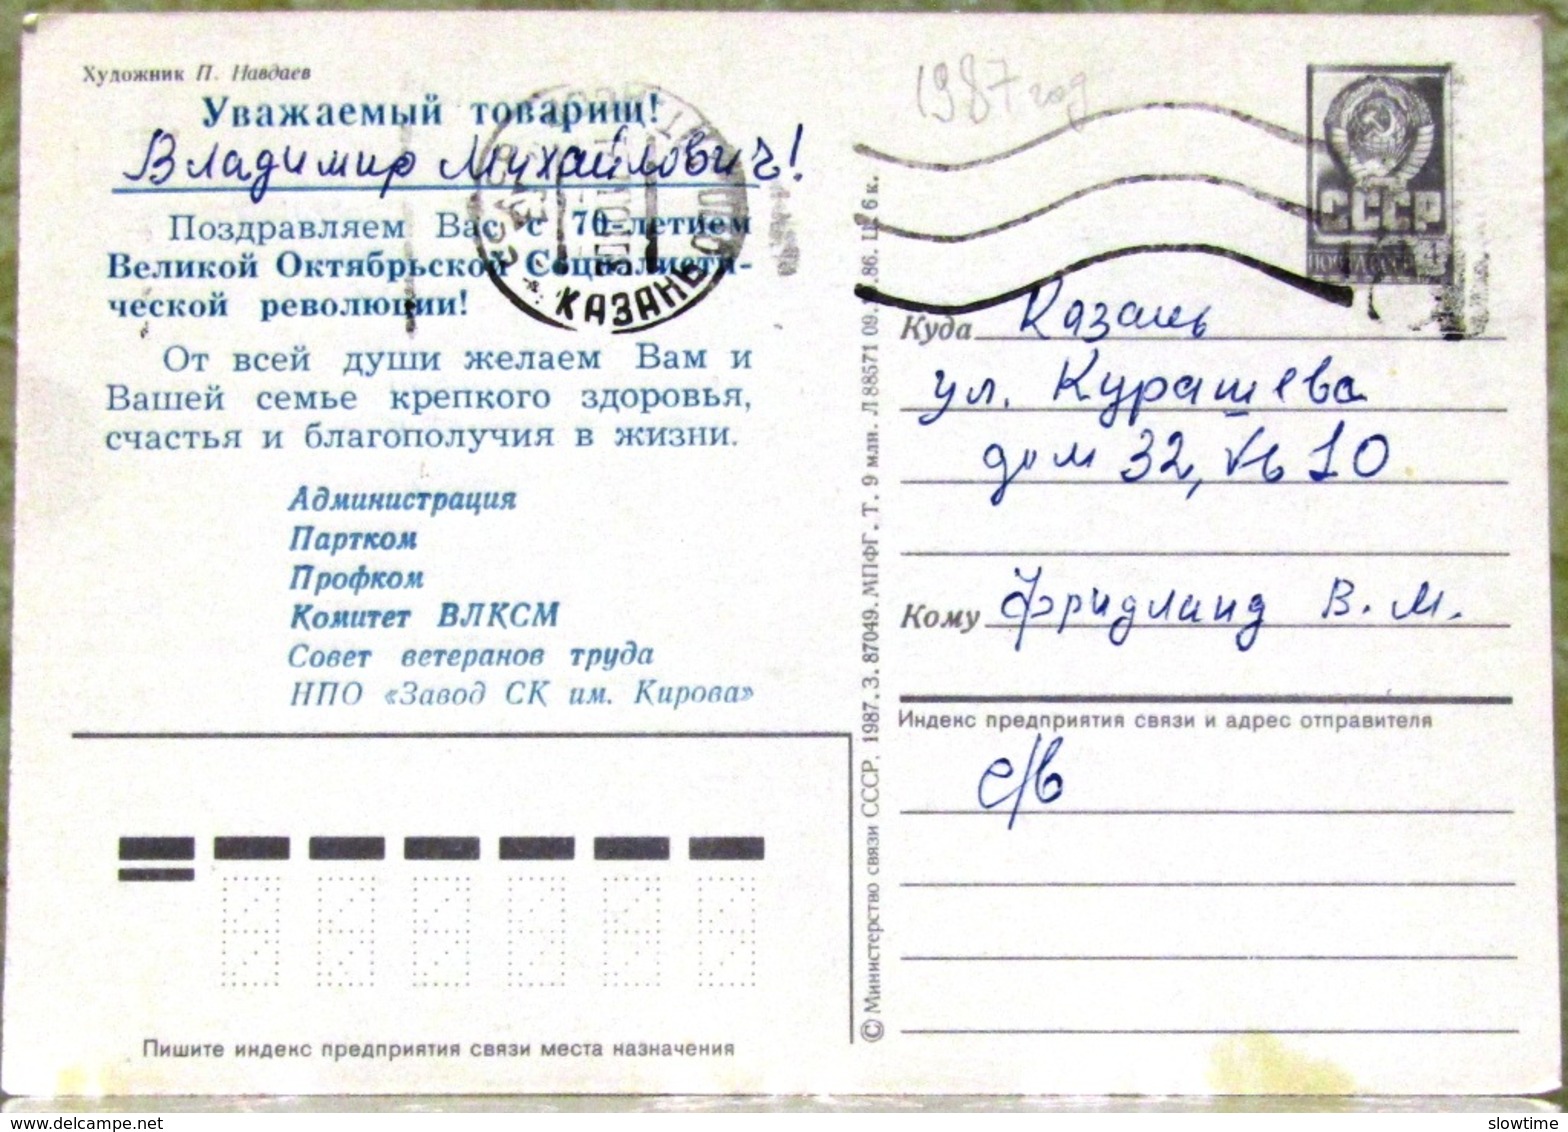 Художник П. Навдаев
Уважаемый товарищ!
Владимир Михайлович!
Поздравляем Вас с 70-летием
Великой Октябрьской Социалисти-
ческой революции!
От всей души желаем Вам и
Вашей семье крепкого здоровья,
счастья и благополучия в жизни.
Администрация
Партком
Профком
Комитет ВЛКСМ
Совет ветеранов труда
НПО «Завод СК им. Кирова»
Пишите индекс предприятия связи места назначения
КАЗАНЬ
© Министерство связи СССР, 1987. З. 87049. МПФГ. Т. 9 млн. Л 88571 09. .86. Ц. 6 к.
1987 год
СССР
ПОЧТА
Куда Казань
ул. Курашева
дом 32, кв 10
Кому Фридланд В. М.
Индекс предприятия связи и адрес отправителя
с/в
delcampe.net
slowtime